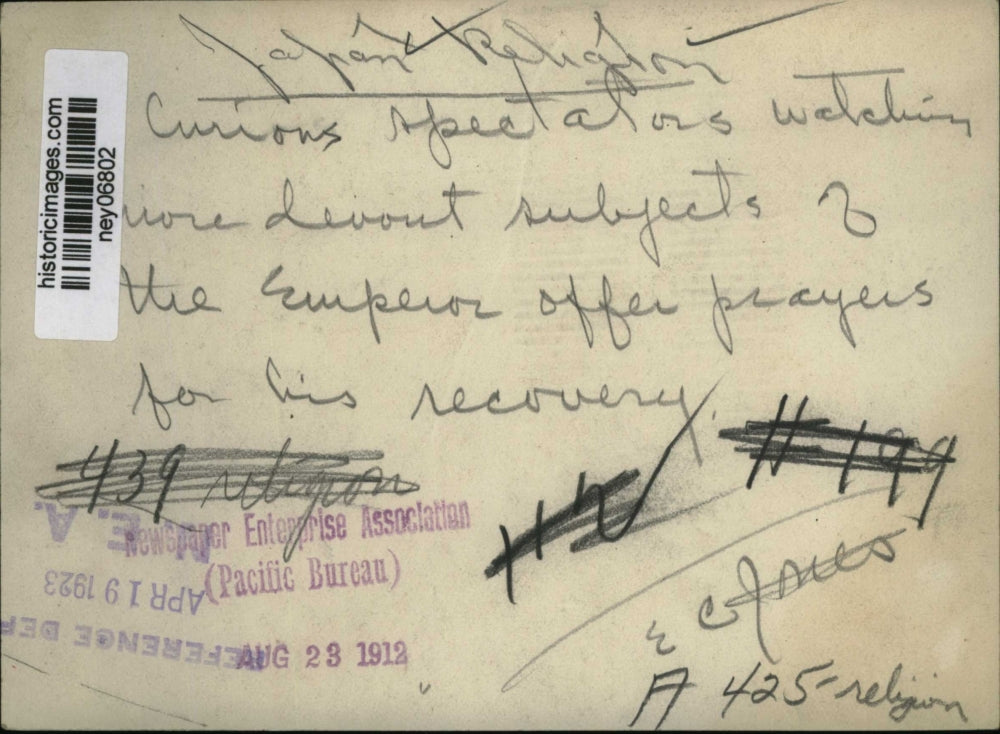 Japan Religion
Curious spectators watching
more devout subjects of
the Emperor offer prayers
for his recovery.
historicimages.com
ney06802
439 religion
# 199
Newspaper Enterprise Association
(Pacific Bureau)
N.E.A.
APR 19 1923
REFERENCE DEP
AUG 23 1912
A 425-religion